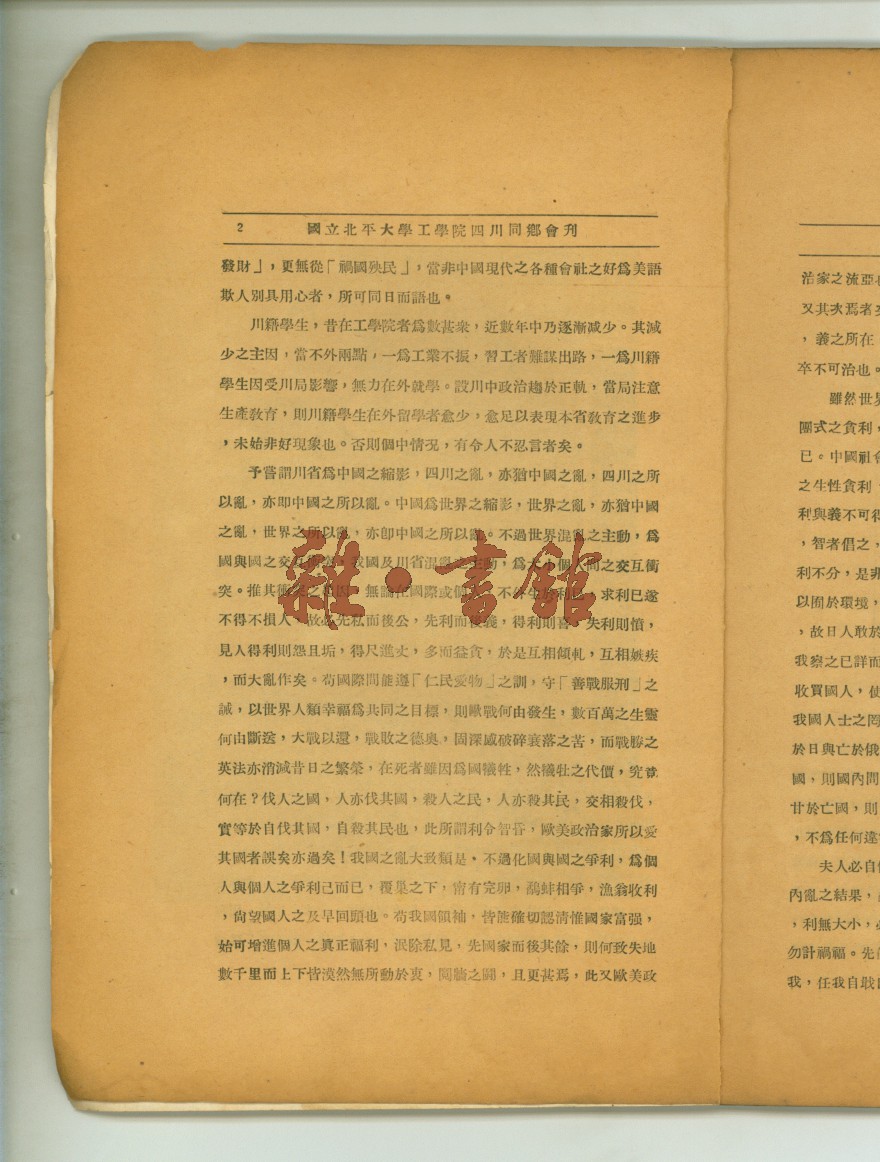 2 國立北平大學工學院四川同鄉會刊
發財」，更無從「禍國殃民」，當非中國現代之各種會社之好爲美語
欺人別具用心者，所可同日而語也。
川籍學生，昔在工學院者爲數甚衆，近數年中乃逐漸減少。其減
少之主因，當不外兩點，一爲工業不振，習工者難謀出路，一爲川籍
學生因受川局影響，無力在外就學。設川中政治趨於正軌，當局注意
生產敎育，則川籍學生在外留學者愈少，愈足以表現本省敎育之進步
，未始非好現象也。否則個中情況，有令人不忍言者矣。
予嘗謂川省爲中國之縮影，四川之亂，亦猶中國之亂，四川之所
以亂，亦即中國之所以亂。中國爲世界之縮影，世界之亂，亦猶中國
之亂，世界之所以亂，亦卽中國之所以亂。不過世界混亂之主動，爲
國與國之交互衝突，我國及川省混亂之主動，爲大小個人間之交互衝
突。推其衝突之原因，無論在國際或個人，不外生於利己，求利已遂
不得不損人，故必先私而後公，先利而後義，得利則喜，失利則憤，
見人得利則怨且垢，得尺進丈，多而益貪，於是互相傾軋，互相嫉疾
，而大亂作矣。苟國際間能遵「仁民愛物」之訓，守「善戰服刑」之
誡，以世界人類幸福爲共同之目標，則歐戰何由發生，數百萬之生靈
何由斷送，大戰以還，戰敗之德奥，固深感破碎衰落之苦，而戰勝之
英法亦消滅昔日之繁榮，在死者雖因爲國犧牲，然犧牲之代價，究竟
何在？伐人之國，人亦伐其國，殺人之民，人亦殺其民，交相殺伐，
實等於自伐其國，自殺其民也，此所謂利令智昏，歐美政治家所以愛
其國者誤矣亦過矣！我國之亂大致類是、不過化國與國之爭利，爲個
人與個人之爭利己而已，覆巢之下，甯有完卵，鷸蚌相爭，漁翁收利
，尙望國人之及早回頭也。苟我國領袖，皆能確切認清惟國家富强，
始可增進個人之眞正福利，泯除私見，先國家而後其餘，則何致失地
數千里而上下皆漠然無所動於衷，鬩牆之鬪，且更甚焉，此又歐美政
治家之流亞
又其次焉者
，義之所在
卒不可治也。
雖然世界
團式之貪利，
已。中國社會
之生性貪利
利與義不可得
，智者倡之，
利不分，是非
以囿於環境，
，故日人敢於
我察之已詳而
收買國人，使
我國人士之
於日與亡於俄
國，則國內問
甘於亡國，則
，不爲任何違
夫人必自
內亂之結果，
，利無大小，
勿計禍福。先
我，任我自戕
雜·書館